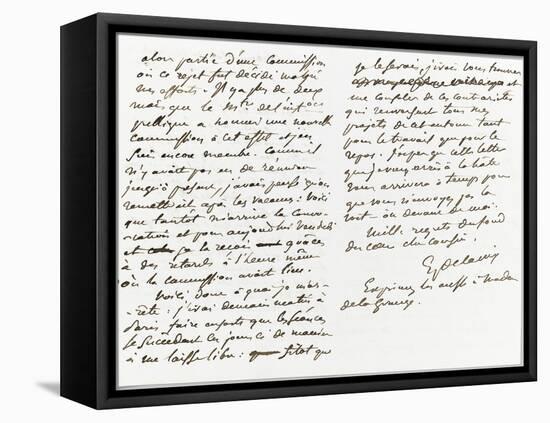 alors partie d'une commission
où ce rejet fut décidé malgré
mes efforts. Il y a plus de deux
mois que le Mtre de l'inst on
publique a nommé une nouvelle
commission à cet effet et j'en
suis encore membre. Comme il
n'y avait pas eu de réunion
jusqu'à présent, j'avais pensé qu'on
remettrait après les vacances: Voici
que tantôt m'arrive la convo-
cation et pour aujourd'hui vendredi
et je la reçois grâces
à des retards à l'heure même
où la commission avait lieu.
Voici donc à quoi je m'ar-
rête: j'irai demain matin à
Paris faire en sorte que les séances
se succèdent ces jours ci de manière
à me laisser libre: sitôt que
je le serai, j'irai vous trouver
et
me consoler de ces contrariétés
qui renversent tous mes
projets de cet automne tant
pour le travail que pour le
repos. J'espère que cette lettre
que j'écris à la hâte
vous arrivera à temps pour
que vous n'envoyiez pas la
voiture au devant de moi.
Mille regrets du fond
du cœur cher cousin,
EugDelacroix
Exprimez les aussi à Madame
de la Grange.